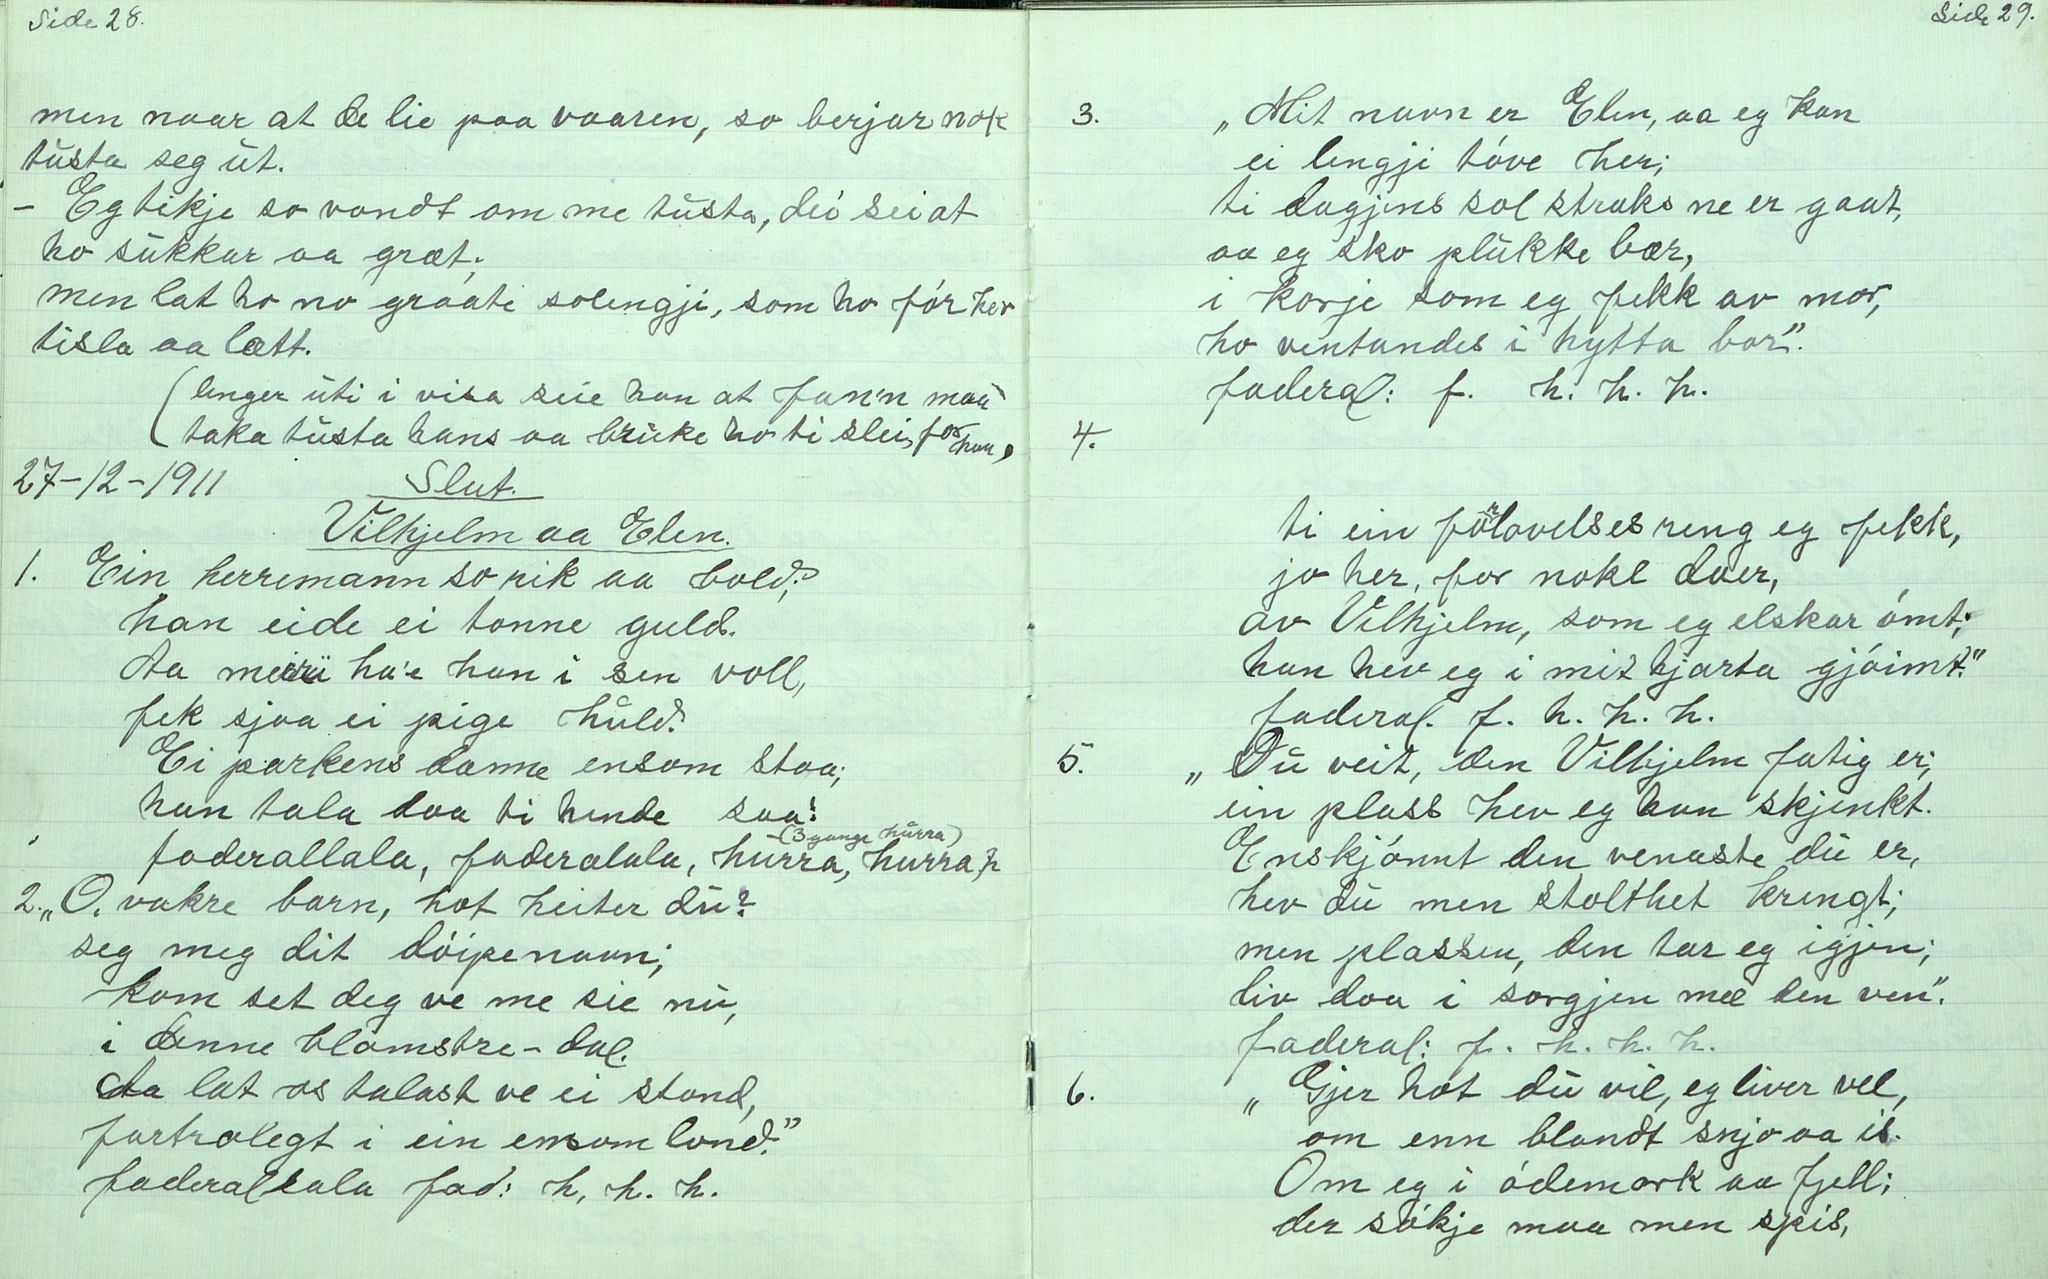 Side 28.
men naar at de lie paa vaaren, so berjar nok
tústa seg út.
- Eg tikje so vondt om me tústa, dei sei at
ho súkkar aa græt;
men lat ho no graate solengji, som ho fór hev
tisla aa lætt.
(lenger úti i visa seie han at Fan'n maa
taka tústa hans aa brúke ho ti slei, for han,
27-12-1911 Slut.
Vilhjelm aa Elen.
1. Ein herremann so rik aa bold;
han eide ei tonne guld.
Aa ha'e han i sen voll,
fek sjaa ei pige húld.
Ei parkens danne ensom staa;
han tala daa ti hende saa:
(3 gange húrra)
faderallala, faderalala, hurra, hurra, h
2. „O, vakre barn, hot heiter dú?
seg meg dit dóipenavn;
kom set deg ve me sie nú,
i denne blomstre-dal.
Aa lat os talast ve ei stond,
fortrolegt i ein ensom lond."
faderallala fad: h, h. h.
Side 29.
3. „Mit navn er Elen, aa eg kan
ei lengji tóve her;
ti dagjens sol straks ne er gaat,
aa eg sko plúkke bær,
i korje som eg fekk av mor,
ho ventandes i hytta bor".
faderal: f. h. h. h.
4.
ti ein forlovelses reng eg fekk,
jo her, for nokl daer,
av Vilhjelm, som eg elskar ómt;
han hev eg i mit hjarta gjóimt."
faderal. f. h. h. h.
5. „Dú veit, den Vilhjelm fatig er;
ein plass hev eg han skjenkt.
Enskjónnt den venaste dú er,
hev dú men stolthet krengt;
men plassen, den tar eg igjen;
liv daa i sorgjen mæ den ven".
faderal: f. h. h. h.
6. „Gjer hot dú vil, eg liver vel,
om enn blandt snjo aa is.
Om eg i ódemark aa fjell;
der sókje maa men spis,